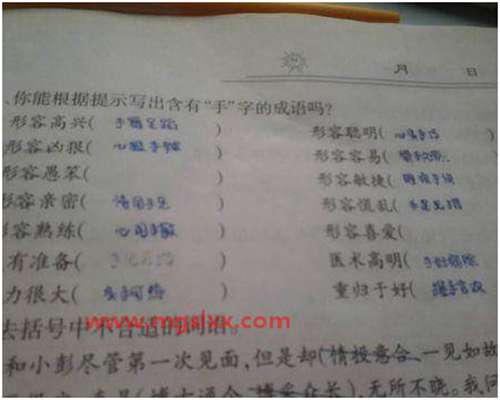 月 日
、你能根据提示写出含有“手”字的成语吗?
形容高兴( 手舞足蹈 ) 形容聪明( 心灵手巧 )
形容凶狠( 心狠手辣 ) 形容容易(
形容愚笨( ) 形容敏捷( 眼疾手快
形容亲密( 情同手足 ) 形容慌乱( 手忙脚乱
容熟练( ) 形容喜爱(
有准备( ) 医术高明( 手到病除
力很大( ) 重归于好( 握手言欢
www.mgslxx.com
去括号中不合适的词语。
和小彭尽管第一次见面,但是却(情投意合、一见如故
(博大通今 博采众长),无所不晓。我问